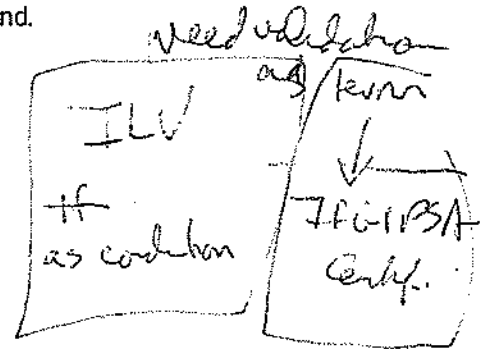 nd.
need validation
as term
ILV
If
as condition
If